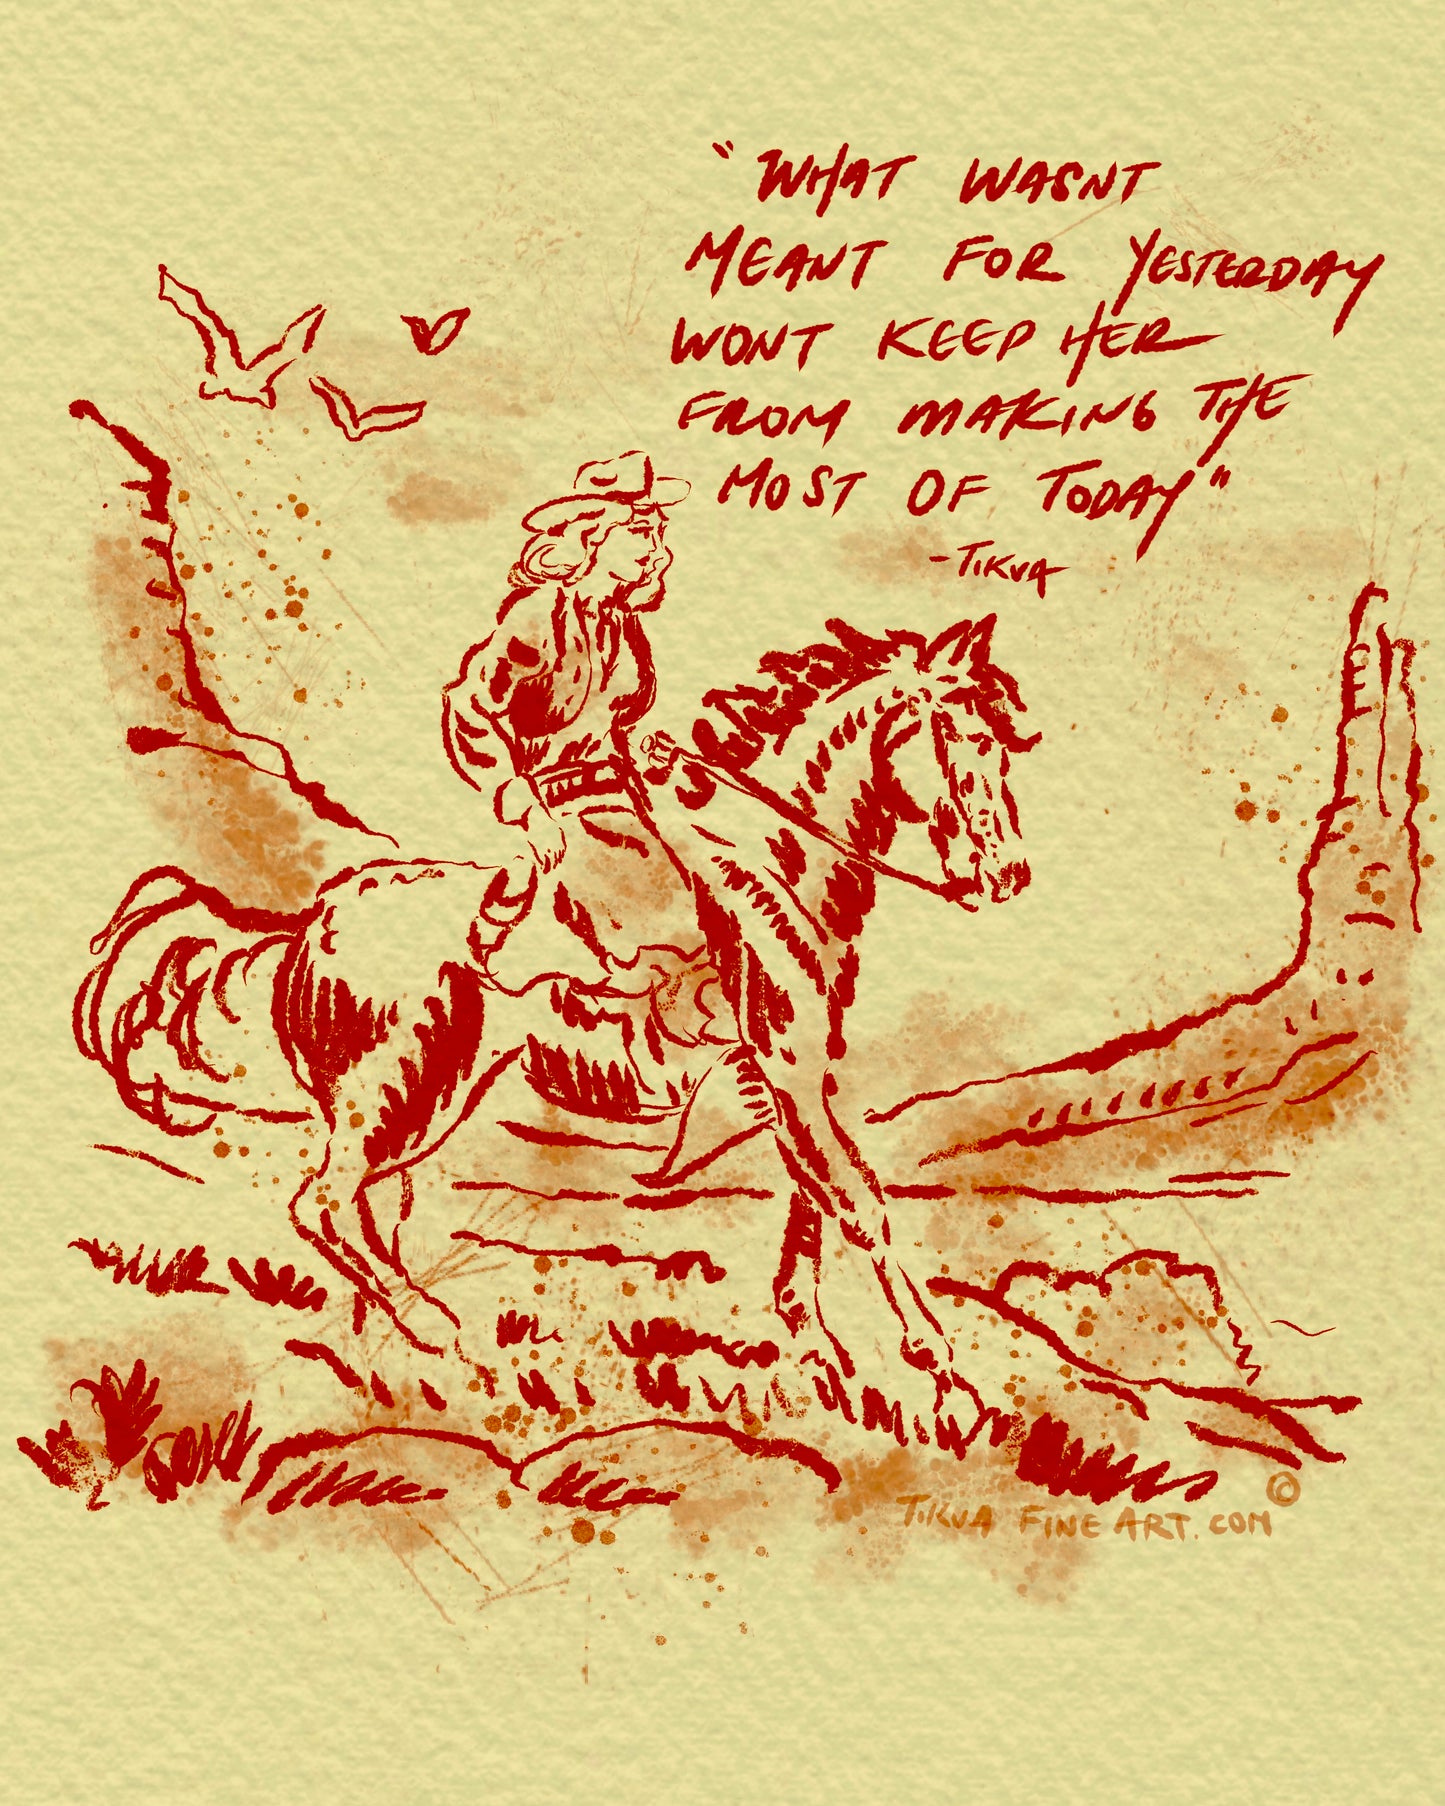 "WHAT WASNT
MEANT FOR YESTERDAY
WONT KEEP HER
FROM MAKING THE
MOST OF TODAY"
-TIKVA
TIKVA FINE ART.COM ©